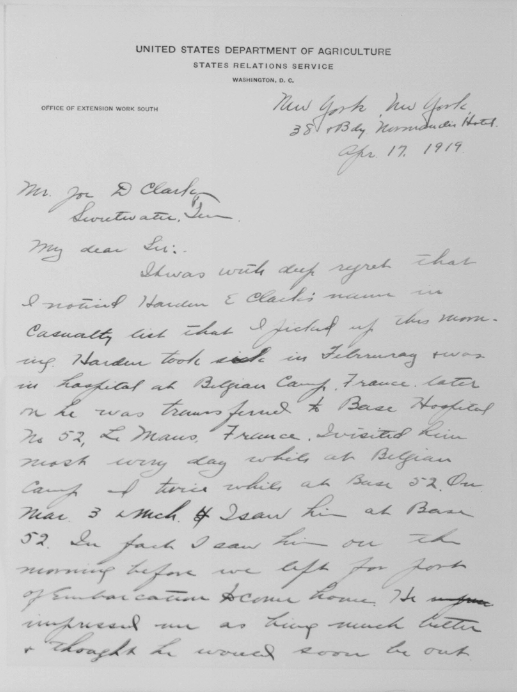 UNITED STATES DEPARTMENT OF AGRICULTURE
STATES RELATIONS SERVICE
WASHINGTON, D. C.
OFFICE OF EXTENSION WORK SOUTH
New York, New York,
38 & Bdy Normandie Hotel.
Apr. 17. 1919.
Mr. Joe D Clark,
Sweetwater, Ten
My dear Sir:.
It was with deep regret that
I noticed Harden E Clark's name in
Casualty list that I picked up this morn-
ing. Harden took sick in February & was
in hospital at Belgian Camp, France. later
on he was transferred to Base Hospital
No 52, Le Mans, France. I visited him
most every day while at Belgian
Camp & twice while at Base 52. On
Mar. 3 & Mch. 4 I saw him at Base
52. In fact I saw him on the
morning before we left for port
of Embarcation to come home. He
impressed me as being much better
& thought he would soon be out